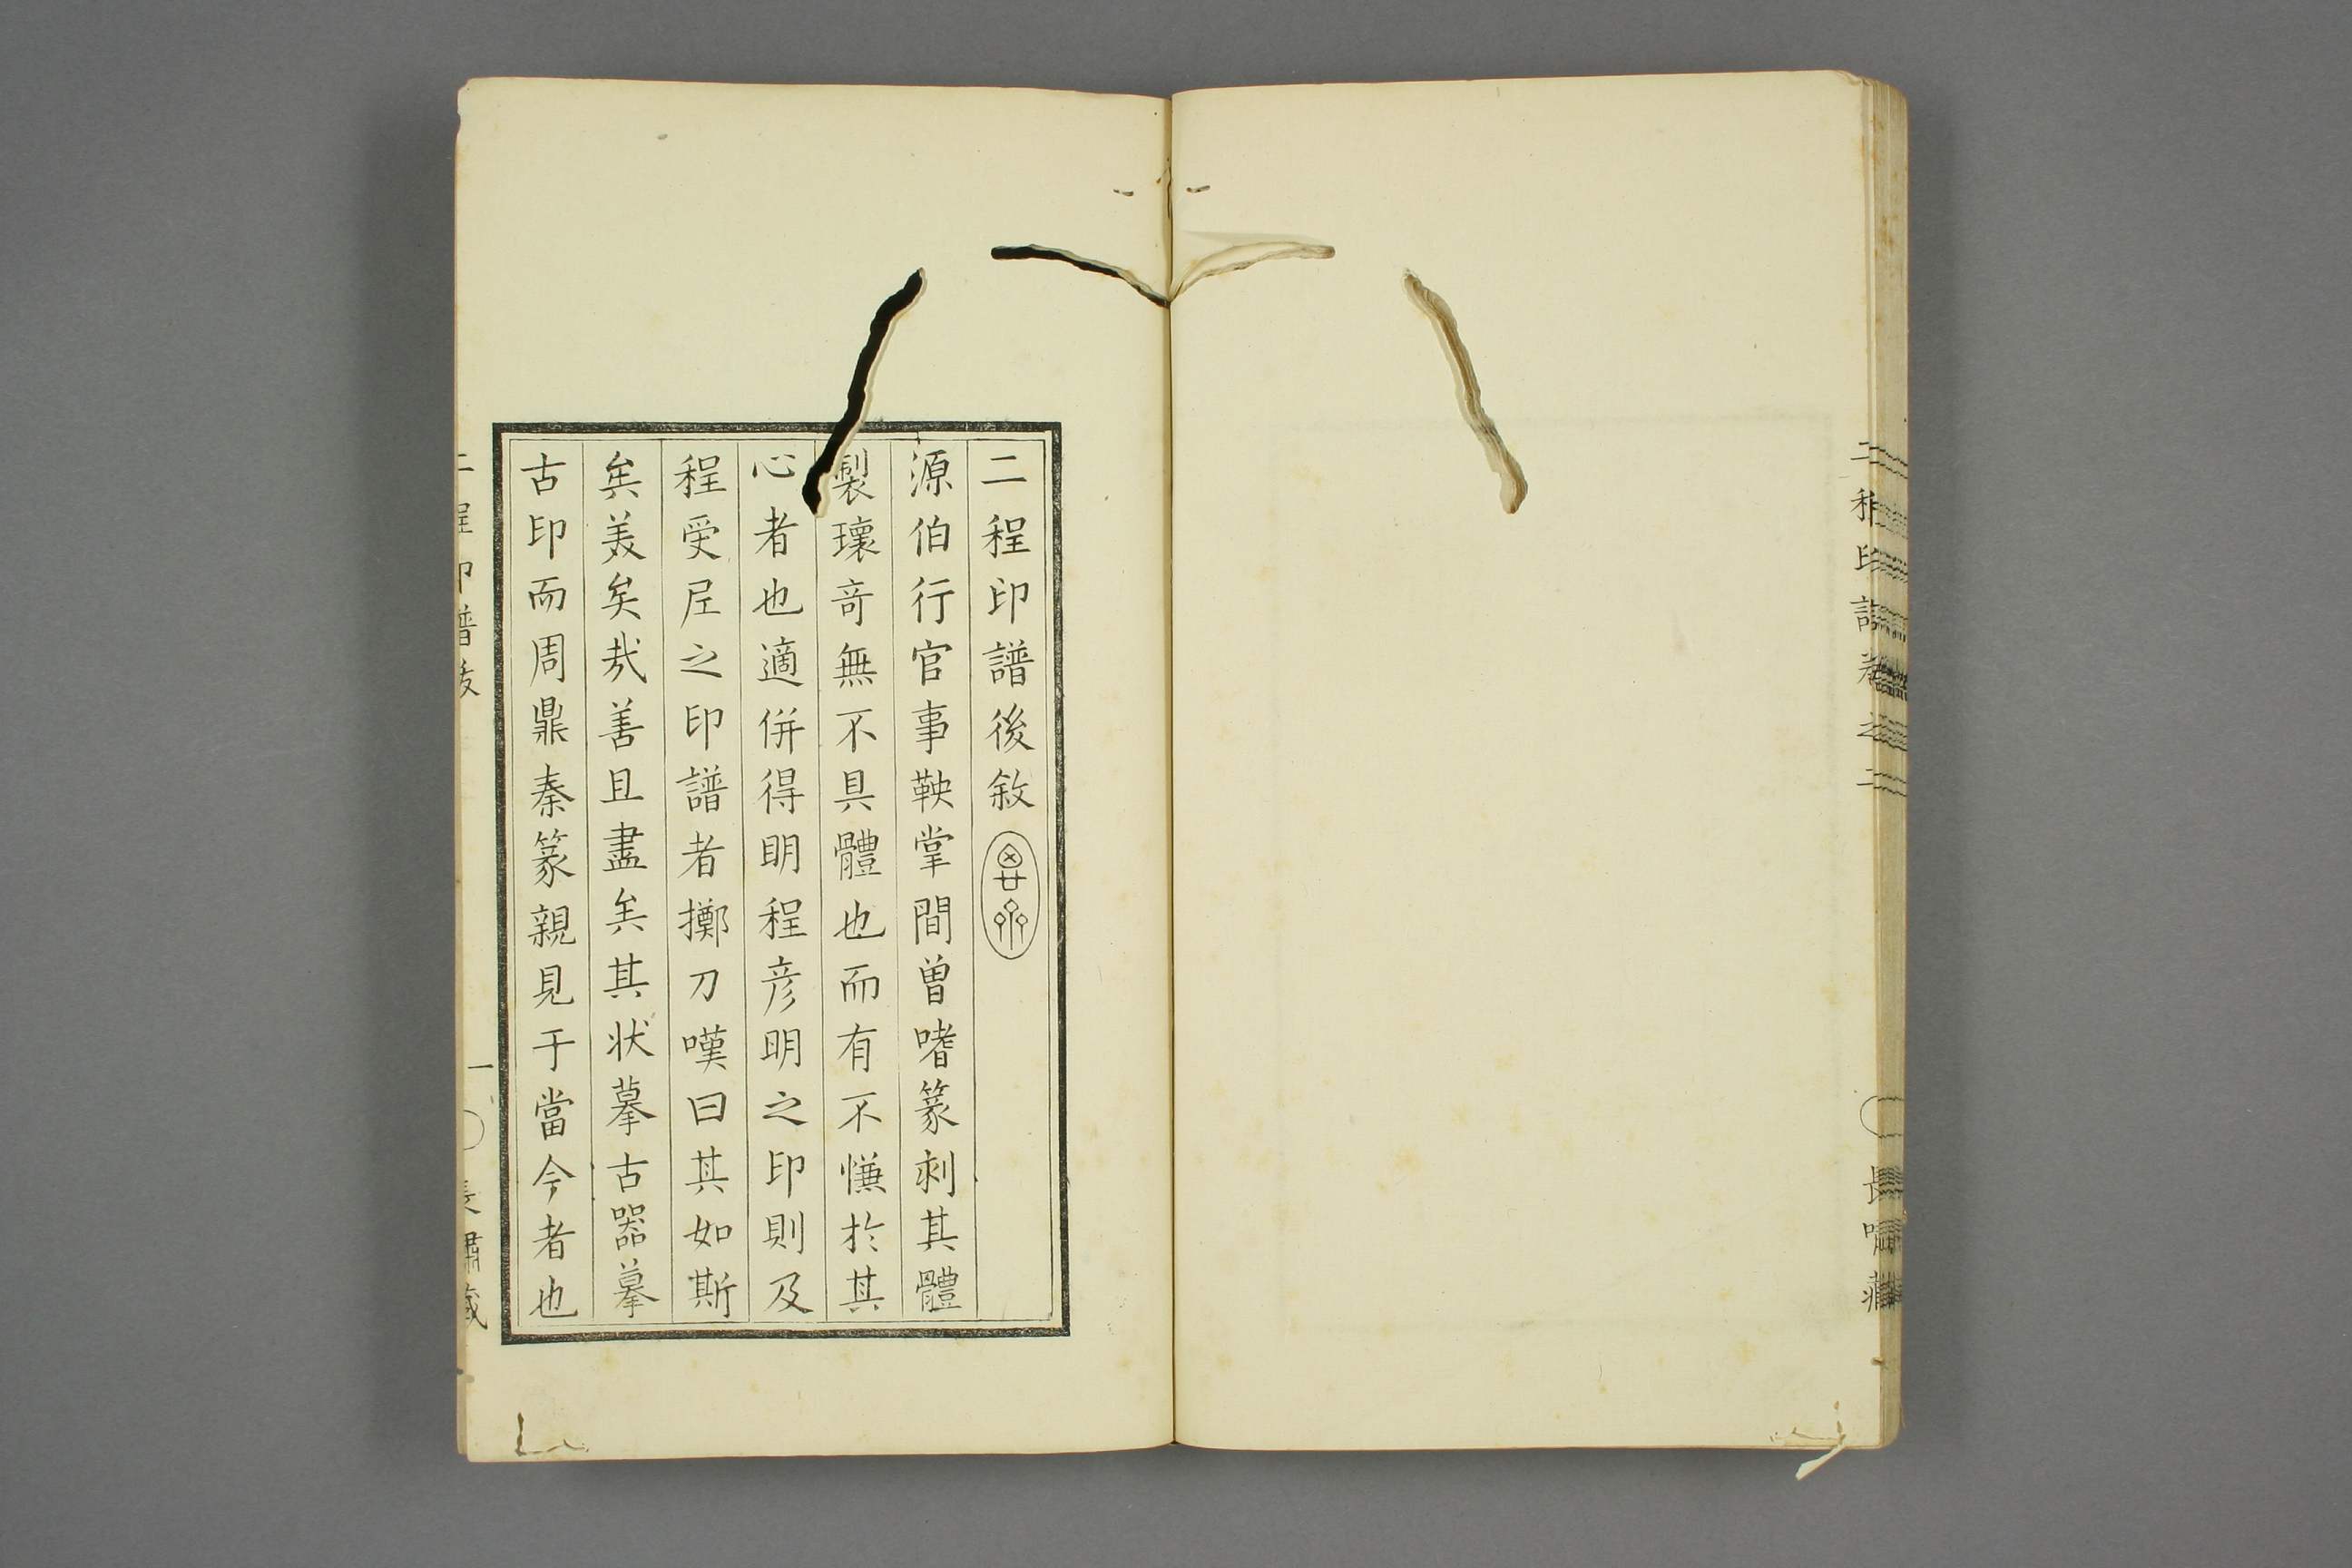 二程印譜後敘
源伯行官事鞅掌間曽嗜篆刺其體
製瓌竒無不具體也而有不慊於其
心者也適併得明程彦明之印則及
程受尼之印譜者擲刀嘆曰其如斯
矣美矣哉善且盡矣其状摹古器摹
古印而周鼎秦篆親見于當今者也
二程印譜後
一
長嘯藏
二程印譜卷之二
長嘯藏